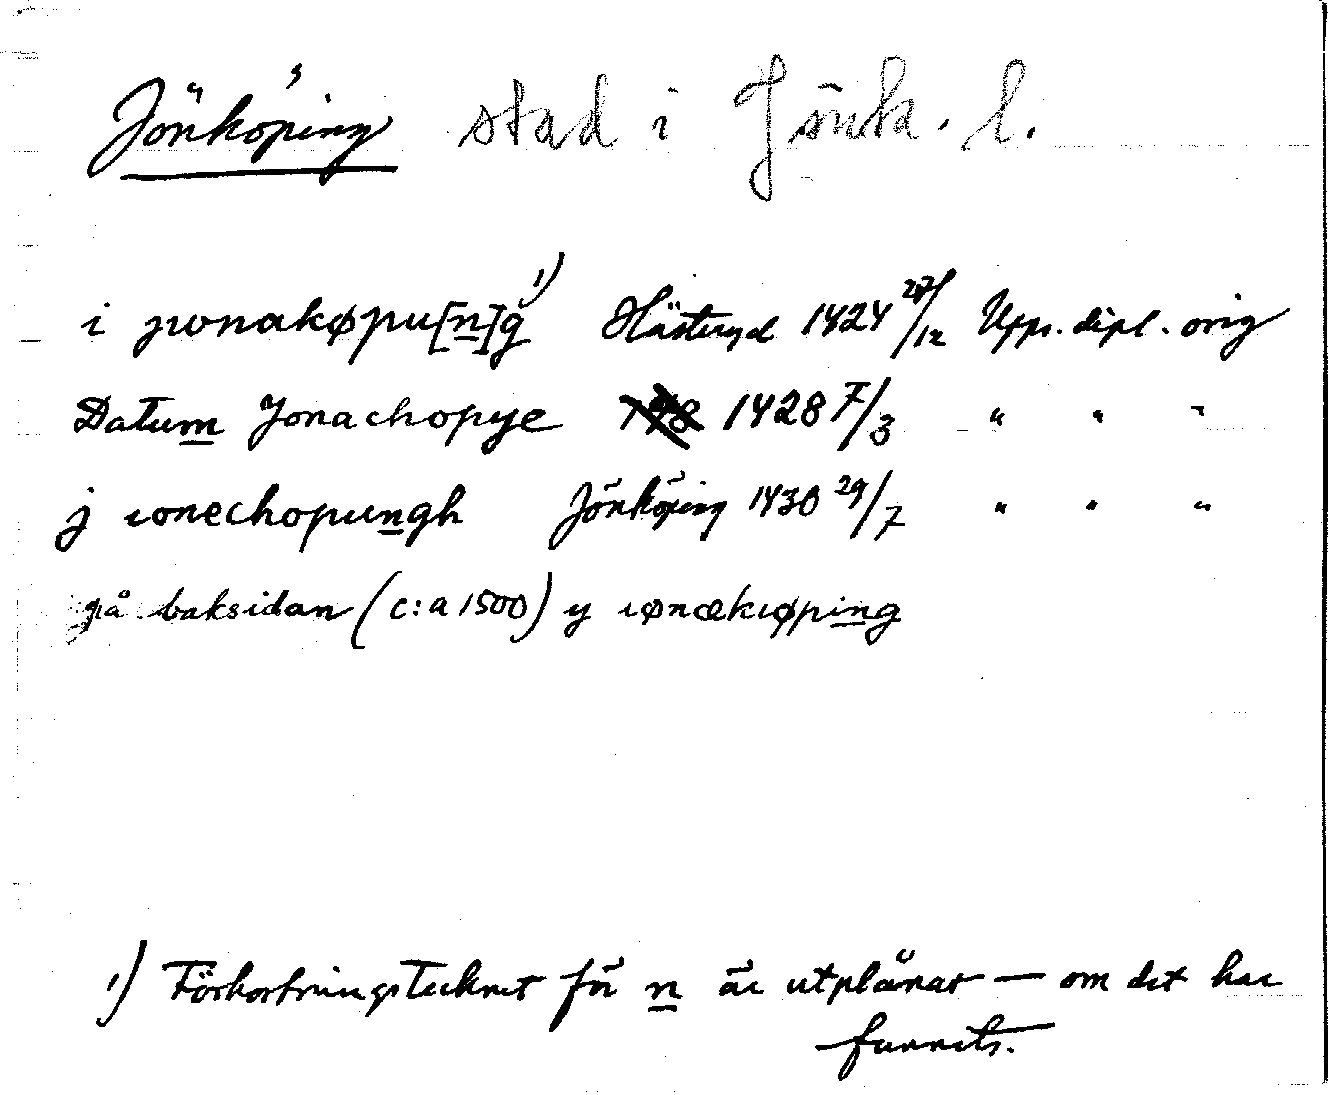 Jönköping stad i Jönk. l.
i jwonakøpu[n]g 1) Hästryd 1424 27/12 Upps. dipl. orig
Datum Jonachopye 1428 7/3 " " "
j ıonechopungh Jönköping 1430 29/7 " " "
på baksidan (c:a 1500) y ıønækıøping
1) Förkortningstecknet för n är utplånat — om det har
funnits.